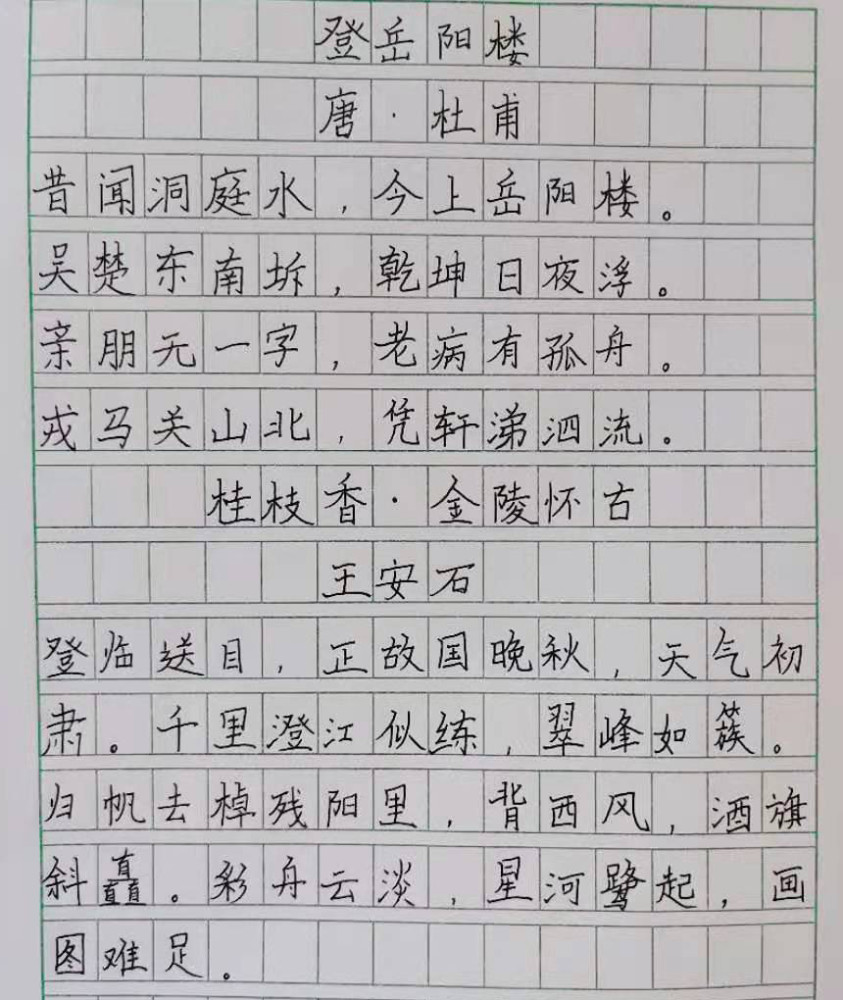 登岳阳楼
唐·杜甫
昔闻洞庭水，今上岳阳楼。
吴楚东南坼，乾坤日夜浮。
亲朋无一字，老病有孤舟。
戎马关山北，凭轩涕泗流。
桂枝香·金陵怀古
王安石
登临送目，正故国晚秋，天气初
肃。千里澄江似练，翠峰如簇。
归帆去棹残阳里，背西风，酒旗
斜矗。彩舟云淡，星河鹭起，画
图难足。